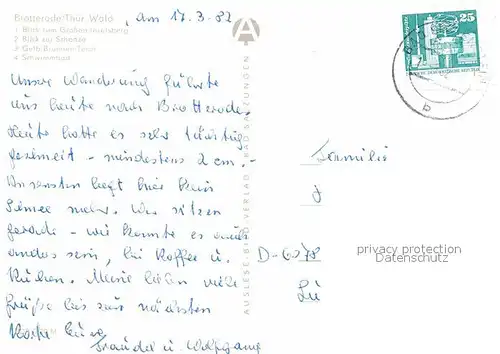 Brotterode/Thür. Wald
1 Blick zum Großen Inselsberg
2 Blick zur Schanze
3 Gelb-Brunnen-Teich
4 Schwimmbad
, am 17.3.82
Unsere Wanderung führte
uns heute nach Brotterode.
Heute hatte es sehr tüchtig
geschneit - mindestens 2 cm. -
Ansonsten liegt hier kein
Schnee mehr. Wir sitzen
gerade - wie könnte es auch
anders sein, bei Kaffee u.
Kuchen. Meine lieben viele
Grüße bis zur nächsten
Karte Eure
Traudel u. Wolfgang
AUSLESE-BILD-VERLAG · BAD SALZUNGEN
25
Familie
D-6078
privacy protection
Datenschutz